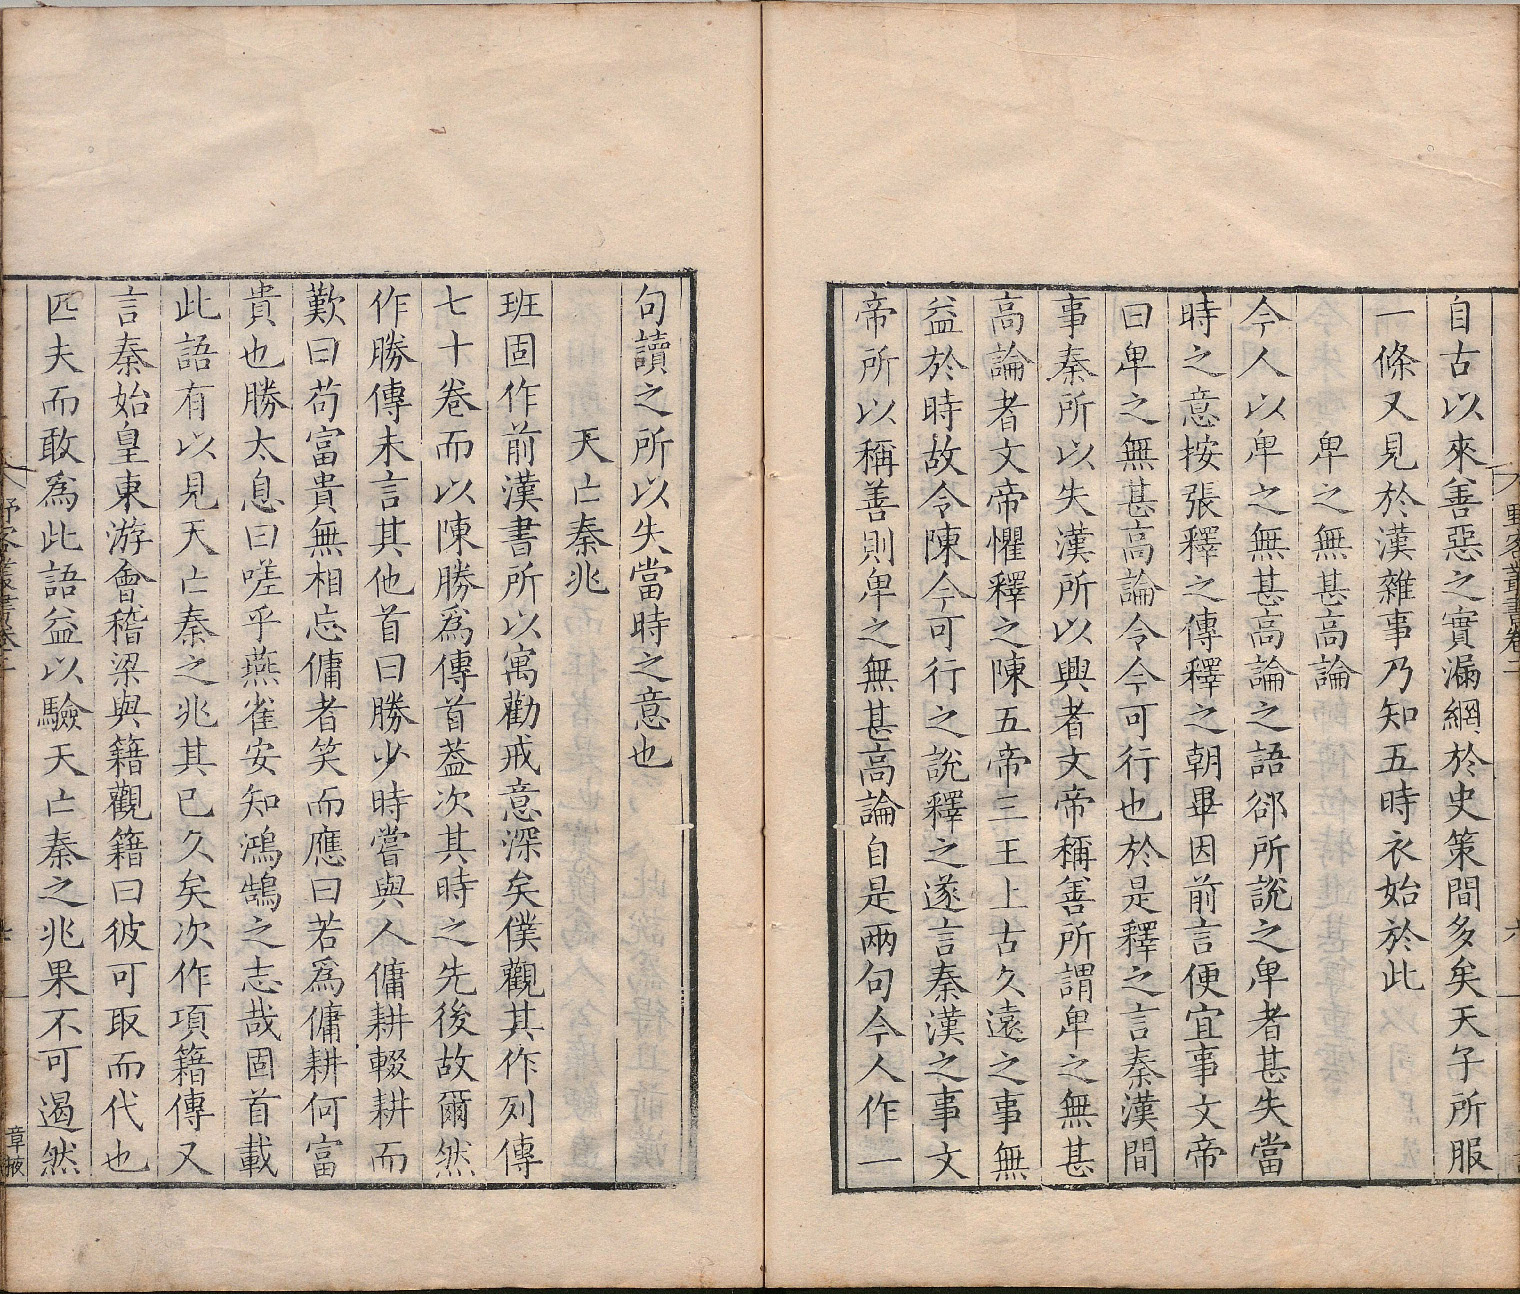 野客叢書卷二
六
自古以來善惡之實漏網於史策間多矣天子所服
一條又見於漢雜事乃知五時衣始於此
卑之無甚高論
今人以卑之無甚高論之語郤所說之卑者甚失當
時之意按張釋之傳釋之朝畢因前言便宜事文帝
曰卑之無甚高論令今可行也於是釋之言秦漢間
事秦所以失漢所以興者文帝稱善所謂卑之無甚
高論者文帝懼釋之陳五帝三王上古久遠之事無
益於時故令陳今可行之說釋之遂言秦漢之事文
帝所以稱善則卑之無甚高論自是兩句今人作一
句讀之所以失當時之意也
天亡秦兆
班固作前漢書所以寓勸戒意深矣僕觀其作列傳
七十卷而以陳勝爲傳首葢次其時之先後故爾然
作勝傳未言其他首曰勝少時嘗與人傭耕輟耕而
歎曰苟富貴無相忘傭者笑而應曰若爲傭耕何富
貴也勝太息曰嗟乎燕雀安知鴻鵠之志哉固首載
此語有以見天亡秦之兆其已久矣次作項籍傳又
言秦始皇東游會稽梁與籍觀籍曰彼可取而代也
匹夫而敢爲此語益以驗天亡秦之兆果不可遏然
章掖